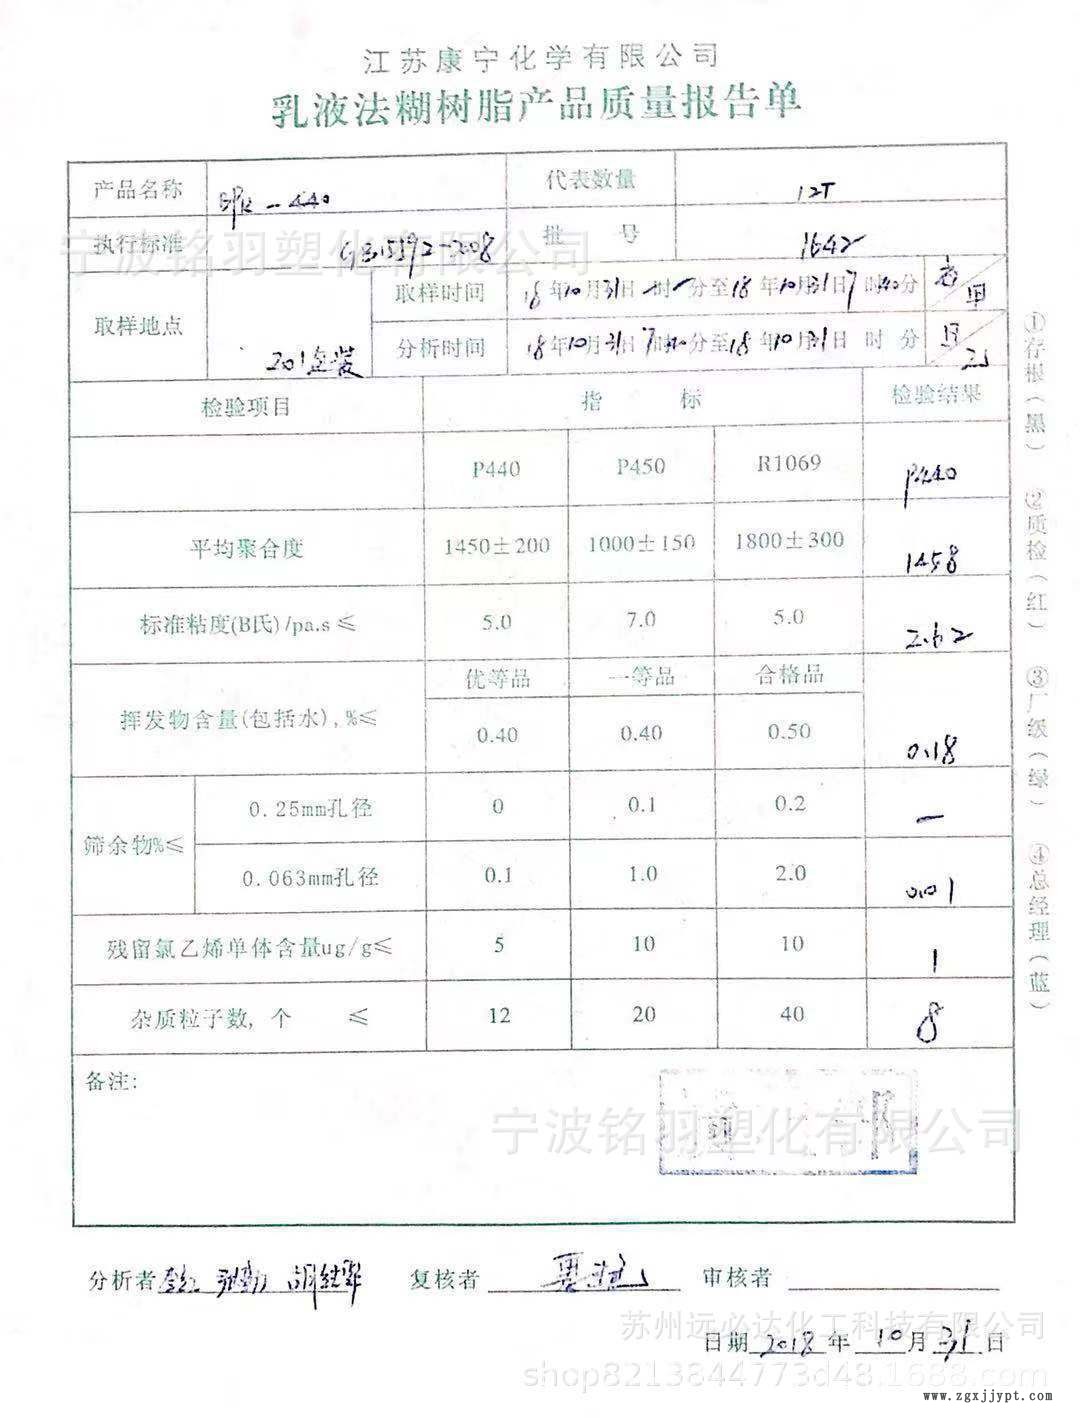 江苏康宁化学有限公司
乳液法糊树脂产品质量报告单
产品名称 -440 代表数量 12T
执行标准 GB15592-2008 批 号 1642
取样地点 201包装 取样时间 18年10月31日 时 分至18年10月31日7时40分
分析时间 18年10月31日7时40分至18年10月31日 时 分
检验项目 指 标 检验结果
P440 P450 R1069 P440
平均聚合度 1450±200 1000±150 1800±300 1458
标准粘度(B氏)/pa.s≤ 5.0 7.0 5.0 2.62
优等品 一等品 合格品
挥发物含量(包括水),%≤ 0.40 0.40 0.50 0.18
筛余物%≤ 0.25mm孔径 0 0.1 0.2 —
0.063mm孔径 0.1 1.0 2.0 0.01
残留氯乙烯单体含量ug/g≤ 5 10 10 1
杂质粒子数, 个 ≤ 12 20 40 8
备注:
分析者 复核者 审核者
日期2018年10月31日
①存根(黑) ②质检(红) ③厂级(绿) ④总经理(蓝)
宁波铭羽塑化有限公司
宁波铭羽塑化有限公司
苏州远必达化工科技有限公司
shop8213844773d48.1688.com
www.zgxjjypt.com